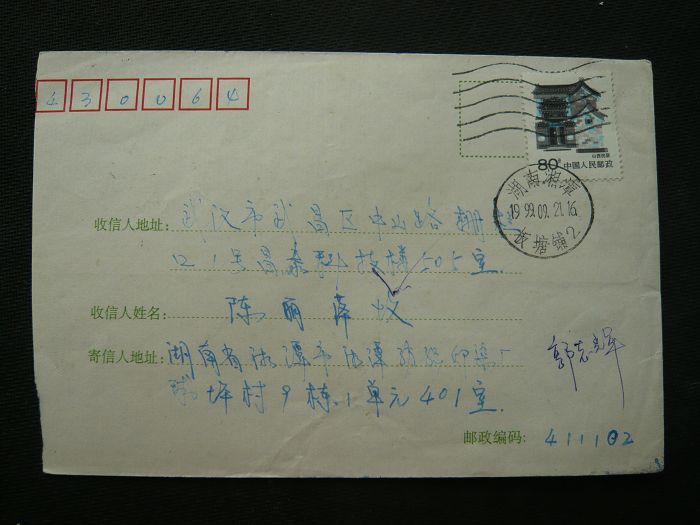 430064
山西民居
80分 中国人民邮政
湖南湘潭
1999.09.21.16
板塘铺2
收信人地址: 武汉市武昌区中山路
口1号昌泰科技楼505室
收信人姓名: 陈丽萍 收
寄信人地址: 湖南省湘潭市湘潭纺织印染厂
坪村9栋1单元401室
郭志军
邮政编码: 411102